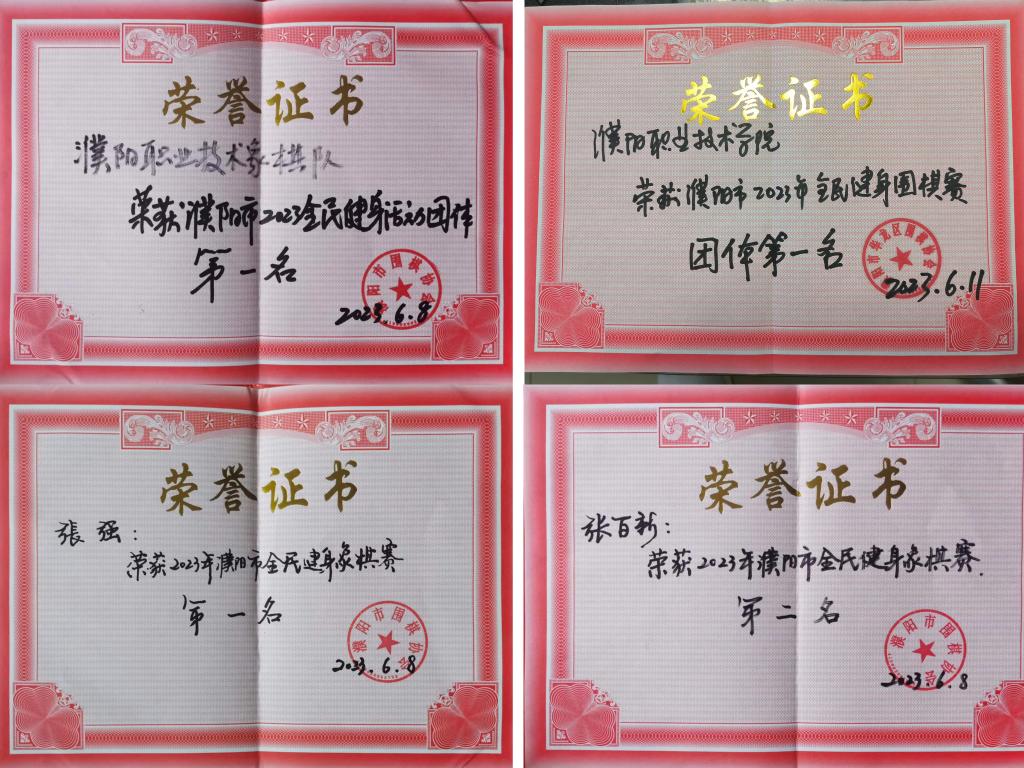 荣誉证书
濮阳职业技术象棋队
荣获濮阳市2023全民健身活动团体
第一名
濮阳市围棋协会
2023.6.8
荣誉证书
濮阳职业技术学院
荣获濮阳市2023年全民健身围棋赛
团体第一名
濮阳市华龙区围棋协会
2023.6.11
荣誉证书
張强:
荣获2023年濮阳市全民健身象棋赛
第一名
濮阳市围棋协会
2023.6.8
荣誉证书
张百新:
荣获2023年濮阳市全民健身象棋赛.
第二名
濮阳市围棋协会
2023.6.8